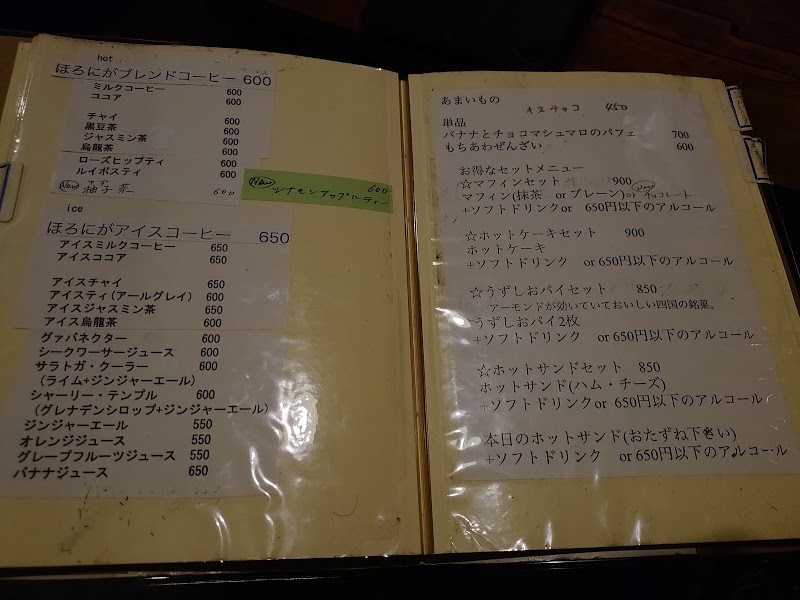 hot
ほろにがブレンドコーヒー 600
ミルクコーヒー 600
ココア 600
チャイ 600
黒豆茶 600
ジャスミン茶 600
烏龍茶 600
ローズヒップティ 600
ルイボスティ 600
New 柚子茶 600
New シナモンアップルティー 600
ice
ほろにがアイスコーヒー 650
アイスミルクコーヒー 650
アイスココア 650
アイスチャイ 650
アイスティ(アールグレイ) 600
アイスジャスミン茶 650
アイス烏龍茶 600
グァバネクター 600
シークワーサージュース 600
サラトガ・クーラー 600
(ライム+ジンジャーエール)
シャーリー・テンプル 600
(グレナデンシロップ+ジンジャーエール)
ジンジャーエール 550
オレンジジュース 550
グレープフルーツジュース 550
バナナジュース 650
あまいもの
チョコ 450
単品
バナナとチョコマシュマロのパフェ 700
もちあわぜんざい 600
お得なセットメニュー
☆マフィンセット 900
マフィン(抹茶 or プレーン) or New チョコレート
+ソフトドリンクor 650円以下のアルコール
☆ホットケーキセット 900
ホットケーキ
+ソフトドリンク or 650円以下のアルコール
☆うずしおパイセット 850
アーモンドが効いていておいしい四国の銘菓。
うずしおパイ2枚
+ソフトドリンク or 650円以下のアルコール
☆ホットサンドセット 850
ホットサンド(ハム・チーズ)
+ソフトドリンクor 650円以下のアルコール
本日のホットサンド(おたずね下さい)
+ソフトドリンク or 650円以下のアルコール